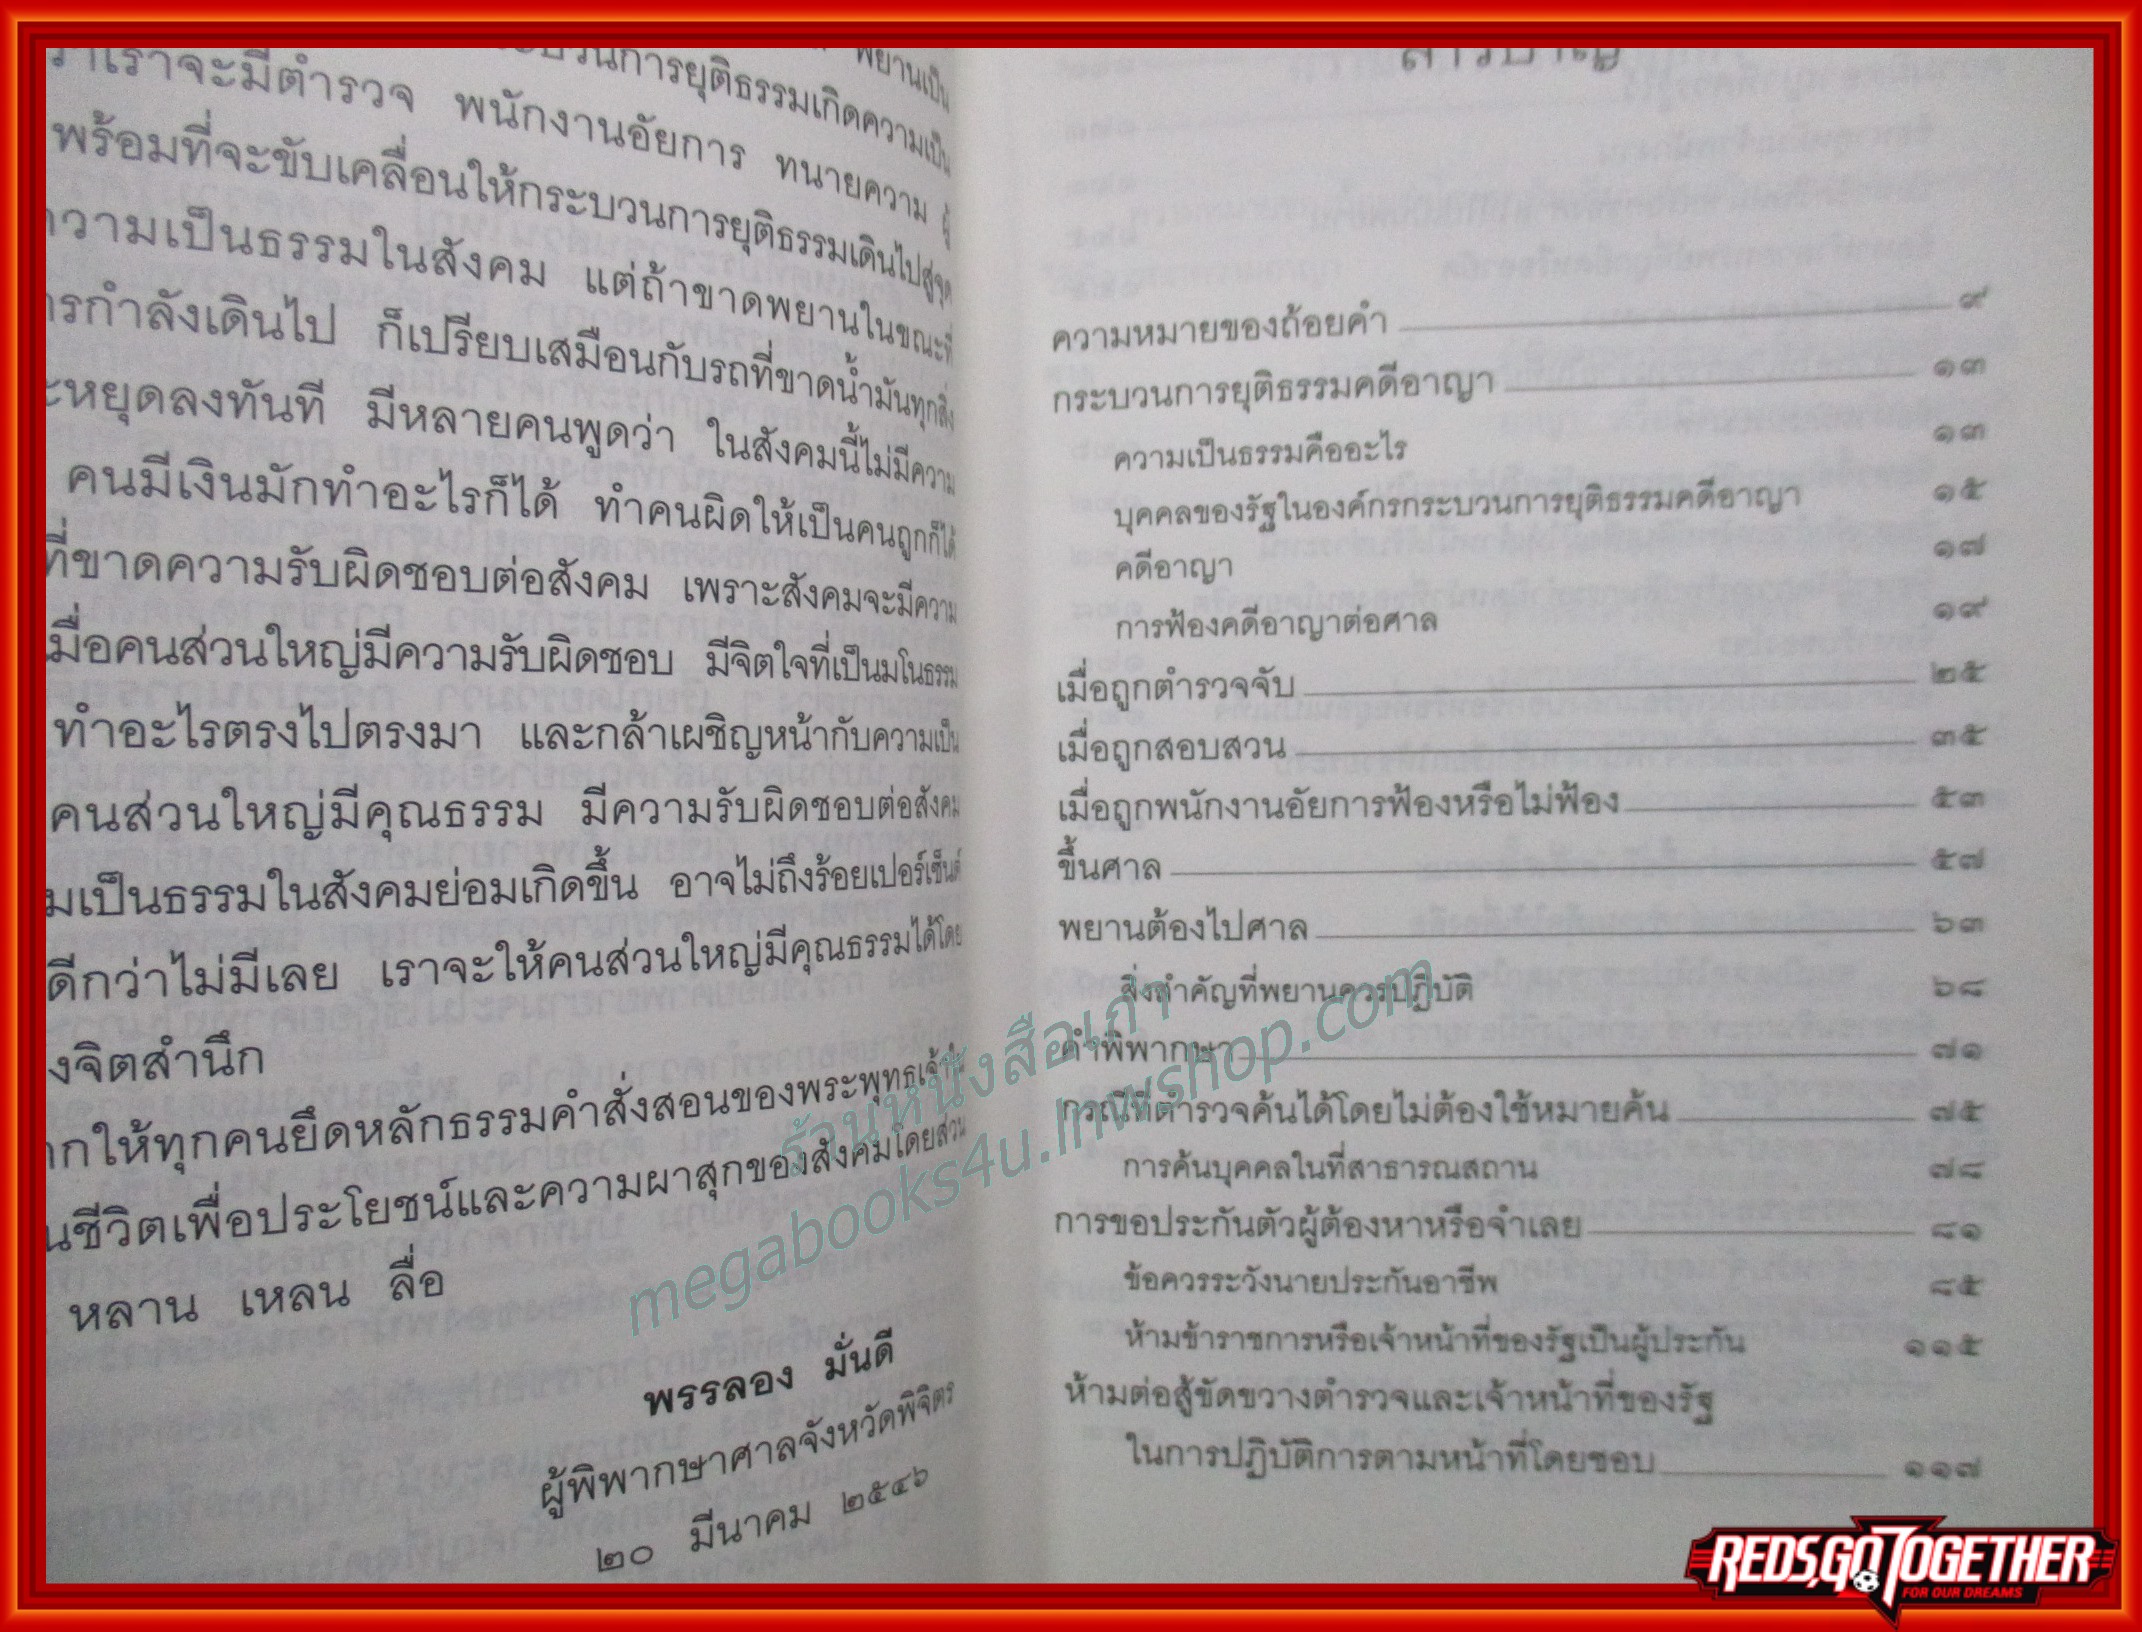 พยานเป็น
ะบวนการยุติธรรมเกิดความเป็น
ว่าเราจะมีตำรวจ พนักงานอัยการ ทนายความ ผู้
พร้อมที่จะขับเคลื่อนให้กระบวนการยุติธรรมเดินไปสู่จุด
ความเป็นธรรมในสังคม แต่ถ้าขาดพยานในขณะที่
ารกำลังเดินไป ก็เปรียบเสมือนกับรถที่ขาดน้ำมันทุกสิ่ง
ะหยุดลงทันที มีหลายคนพูดว่า ในสังคมนี้ไม่มีความ
คนมีเงินมักทำอะไรก็ได้ ทำคนผิดให้เป็นคนถูกก็ได้
ที่ขาดความรับผิดชอบต่อสังคม เพราะสังคมจะมีความ
มื่อคนส่วนใหญ่มีความรับผิดชอบ มีจิตใจที่เป็นมโนธรรม
ทำอะไรตรงไปตรงมา และกล้าเผชิญหน้ากับความเป็น
คนส่วนใหญ่มีคุณธรรม มีความรับผิดชอบต่อสังคม
มเป็นธรรมในสังคมย่อมเกิดขึ้น อาจไม่ถึงร้อยเปอร์เซ็นต์
ดีกว่าไม่มีเลย เราจะให้คนส่วนใหญ่มีคุณธรรมได้โดย
งจิตสำนึก
ากให้ทุกคนยึดหลักธรรมคำสั่งสอนของพระพุทธเจ้า
นชีวิตเพื่อประโยชน์และความผาสุกของสังคมโดยส่วน
หลาน เหลน ลื่อ
พรรลอง มั่นดี
ผู้พิพากษาศาลจังหวัดพิจิตร
๒๐ มีนาคม ๒๕๔๖
สารบาญ
ความหมายของถ้อยคำ ๙
กระบวนการยุติธรรมคดีอาญา ๑๓
ความเป็นธรรมคืออะไร ๑๓
บุคคลของรัฐในองค์กรกระบวนการยุติธรรมคดีอาญา ๑๕
คดีอาญา ๑๗
การฟ้องคดีอาญาต่อศาล ๑๙
เมื่อถูกตำรวจจับ ๒๕
เมื่อถูกสอบสวน ๓๕
เมื่อถูกพนักงานอัยการฟ้องหรือไม่ฟ้อง ๕๓
ขึ้นศาล ๕๗
พยานต้องไปศาล ๖๓
สิ่งสำคัญที่พยานควรปฏิบัติ ๖๘
คำพิพากษา ๗๑
กรณีที่ตำรวจค้นได้โดยไม่ต้องใช้หมายค้น ๗๕
การค้นบุคคลในที่สาธารณสถาน ๗๘
การขอประกันตัวผู้ต้องหาหรือจำเลย ๘๑
ข้อควรระวังนายประกันอาชีพ ๘๕
ห้ามข้าราชการหรือเจ้าหน้าที่ของรัฐเป็นผู้ประกัน ๑๑๕
ห้ามต่อสู้ขัดขวางตำรวจและเจ้าหน้าที่ของรัฐ
ในการปฏิบัติการตามหน้าที่โดยชอบ ๑๑๗
ร้านหนังสือเก่า
megabooks4u.lnwshop.com
REDS,GO TOGETHER
FOR OUR DREAMS